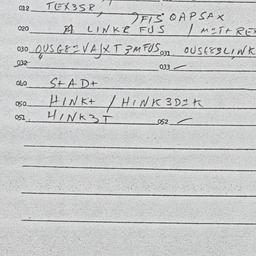 018 TEX3S8,
7FIS OAPSAX
020 LINKR FUS / M=T+REX
030 OUSG8=VA/XT3MFUS 031 OUSG83LINK
032 033
040 S+AD+
050 HINK+ / HINK3D=K
051 HINK3T 052